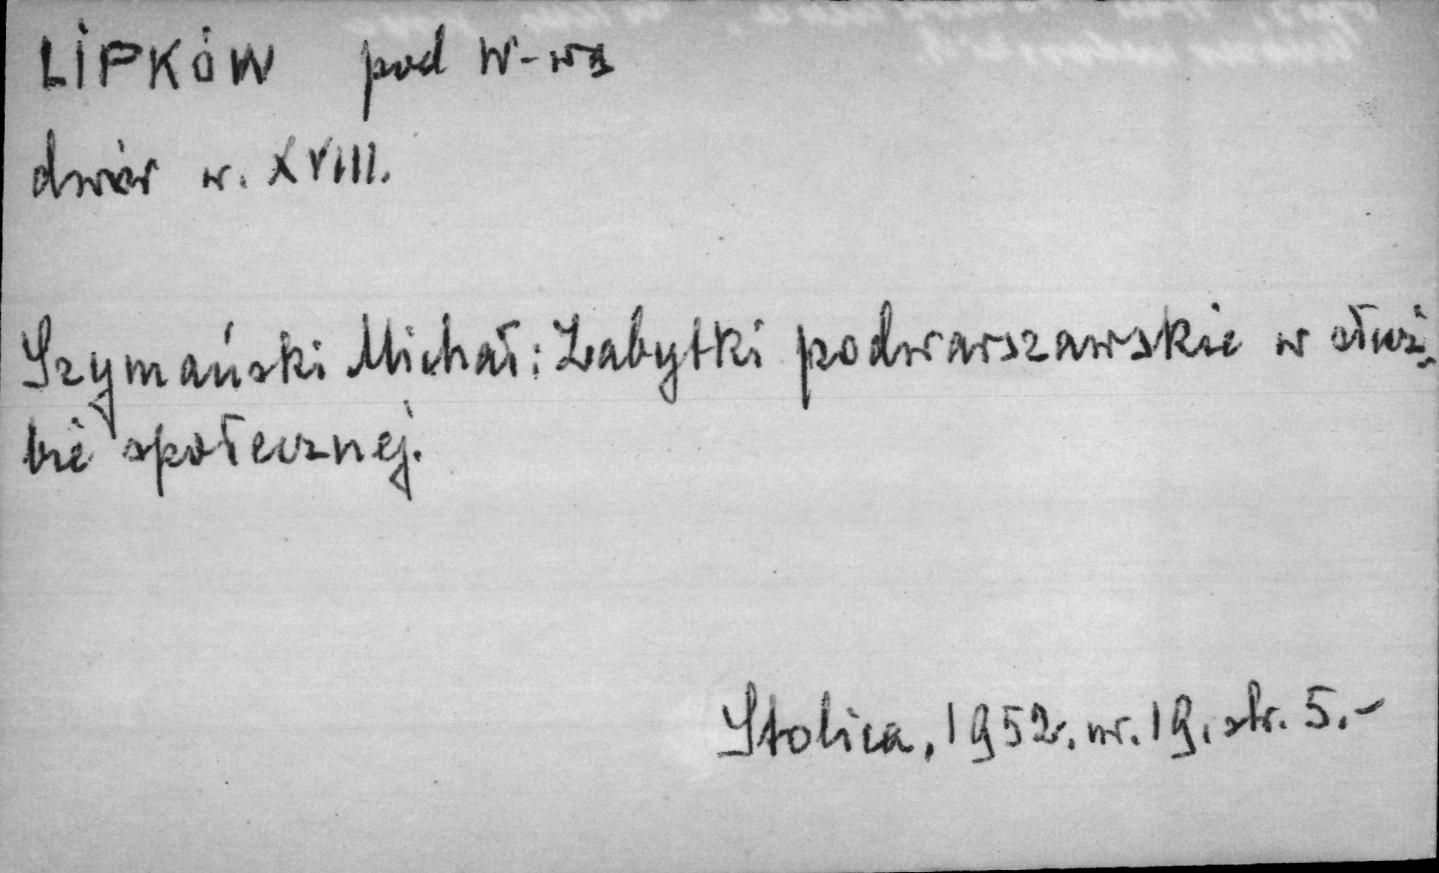 LIPKÓW pod W-wą
dwór w. XVIII.
Szymański Michał: Zabytki podwarszawskie w służ-
bie społecznej.
Stolica, 1952r. nr. 19, str. 5.-